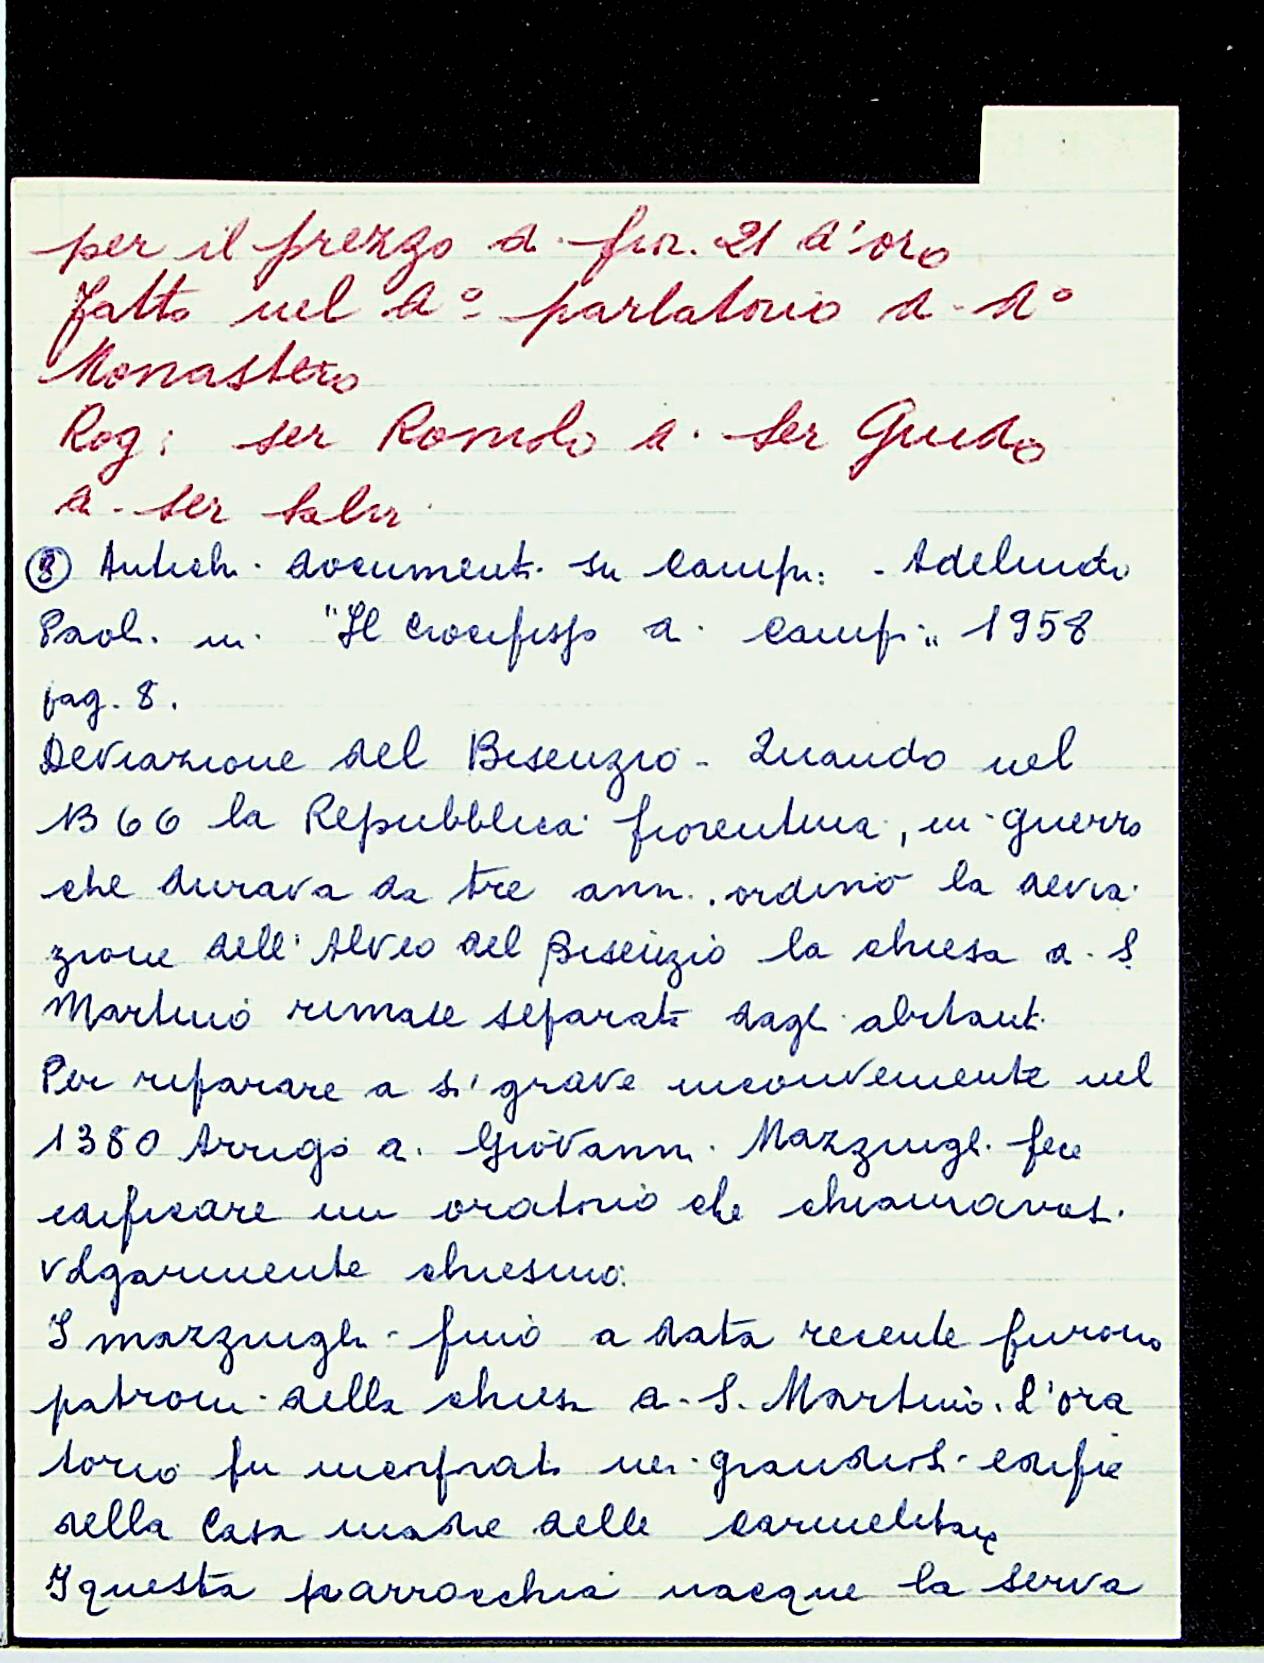 per il prezzo di fior. 21 d'oro
fatto nel d° parlatorio di d°
Monastero
Rog: ser Romolo di Ser Guido
di ser Salvi
⑧ Antichi documenti su Campi: - Adelindo
Paoli in "Il Crocifisso di Campi" 1958
pag. 8.
Deviazione del Bisenzio - Quando nel
1366 la Repubblica fiorentina, in guerra
che durava da tre anni, ordinò la devia
zione dell'Alveo del Bisenzio la chiesa di S.
Martino rimase separata dagli abitanti.
Per riparare a sì grave inconveniente nel
1380 Arrigo di Giovanni Mazzinghi fece
edificare un oratorio che chiamavasi
volgarmente chiesino:
I mazzinghi fino a data recente furono
patroni della chiesa di S. Martino. L'ora
torio fu incorporato nei grandiosi edifici
della Casa madre delle Carmelitane
I questa parrocchia nacque la serva